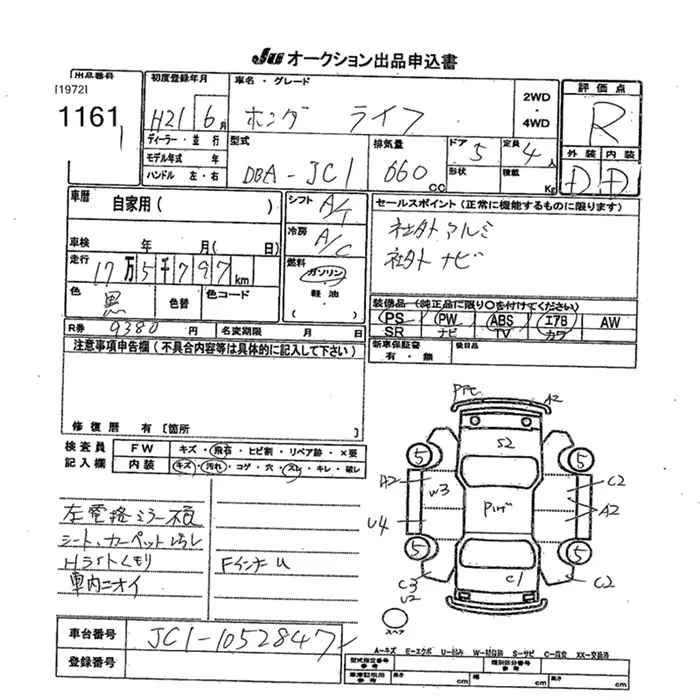 JU オークション出品申込書
出品番号
[1972]
1161
初度登録年月
H21 6月
車名・グレード
ホンダ ライフ
2WD
・
4WD
評価点
R
外装 内装
D D
ディーラー・並行
モデル年式 年
ハンドル 左・右
型式
DBA-JC1
排気量
660 CC
ドア 5
形状
定員 4人
積載 Kg
車歴
自家用( )
車検 年 月(日)
走行 17万5千797km
色 黒
色替
色コード
シフト A/T
冷房 A/C
燃料
ガソリン
・
軽油
・
( )
セールスポイント(正常に機能するものに限ります)
社外アルミ
社外ナビ
装備品(純正品に限り○を付けてください)
PS PW ABS エアB AW
SR ナビ TV カワ
新車保証書
有・無
後日品
R券 9380 円
名変期限 月 日
注意事項申告欄(不具合内容等は具体的に記入して下さい)
修復歴 有[箇所 ]
検査員
記入欄
FW キズ・飛石・ヒビ割・リペア跡・×要
内装 キズ・汚れ・コゲ・穴・スレ・キレ・破レ
左電格ミラー不良
シート、カーペット汚れ
Hライトくもり
車内ニオイ
FインナーU
A2
S2
5
5
A2
W3
C2
A2
U4
5
5
C3
U2
C1
C2
スペア
A-キズ E-エクボ U-凹み W-補修跡 S-サビ C-腐食 XX-交換済
車台番号 JC1-1052847
登録番号
型式指定番号
参考
類別区分番号
参考
車庫証明用
参考
長さ cm
cm
高さ cm